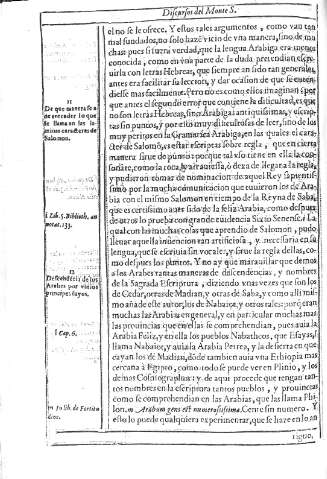 Discursos del Monte S.
el no se le ofrece. Y estos tales argumentos, como van tan
mal fundados, no solo haze vicio de vna manera, sino de mu
chas: pues si fuera verdad, que la lengua Arabiga era menos
conocida, como en vna parte de la duda pretendian escre
uirla con letras Hebreas, que siempre an sido tan generales
antes era facilitar su leccion, y dar ocasion de que se enten
diesse mas facilmente. Pero no es como ellos imaginan: por
que antes el segundo error que contiene la dificultad, es que
no son letras Hebreas, sino Arabigas antiquissimas, y escrip
tas sin puntos, y por esso muy dificultosas de leer, sino de los
muy peritos en la Gramatica Arabiga, en las quales el carac-
ter de Salomon, es estar escriptas sobre regla, que en cierta
manera sirue de puntos: porque tal vso tares en ella la con
11
De que manera se a
de entender lo que
se llaman en las la
minas caracteres de
Salomon.
y pudieron tomar denominacion de aquel Rey sapientis-
simo por la mucha comunicacion que tuuieron los de Ara
bia con el mismo Salomon en tiempo de la Reyna de Saba,
que es certissimo auer sido de la feliz Arabia, como despues
de otros lo prueua con grande diligencia Sixto Senense. La
1 Lib. 5. Biblioth. an
notat. 133.
qual con las muchas cosas que aprendio de Salomon, pudo
lleuar aquella inuencion tan artificiosa, y necessaria en su
lengua, que se escriuia sin vocales, y sirue la regla dellas, co
mo despues los puntos. Y no ay que marauillar que demos
12
Descendencia de los
Arabes por varios
principes suyos.
a los Arabes tantas maneras de descendencias, y nombres
de la Sagrada Escriptura, diziendo vnas vezes que son los
de Cedar, otras de Madian, y otras de Saba, y como alli mis
mo añade este autor, los de Nabaiot, y otros tales: porque eran
muchas las Arabias en general, y en particular muchas mas
las prouincias que en ellas se comprehendian, pues auia la
Arabia Feliz, y en ella los pueblos Nabatheos, que Esayas,
l Cap. 6.
llama Nabaiot, y auia la Arabia Petrea, y la desierta en que
cayan los de Madian, donde tambien auia vna Ethiopia mas
cercana a Egipto, como todo se puede ver en Plinio, y los
demos Cosmographos: y de aqui procede que tengan tan-
tos nombres en la escriptura tantos pueblos, y prouincias
como se comprehendian en las Arabias, que las llama Phi-
lon. m Arabum gens est numerosissima. Gente sin numero. Y
m In lib. de Fortitu
dine.
esto lo puede qualquiera experimentar, que se haze en lo an